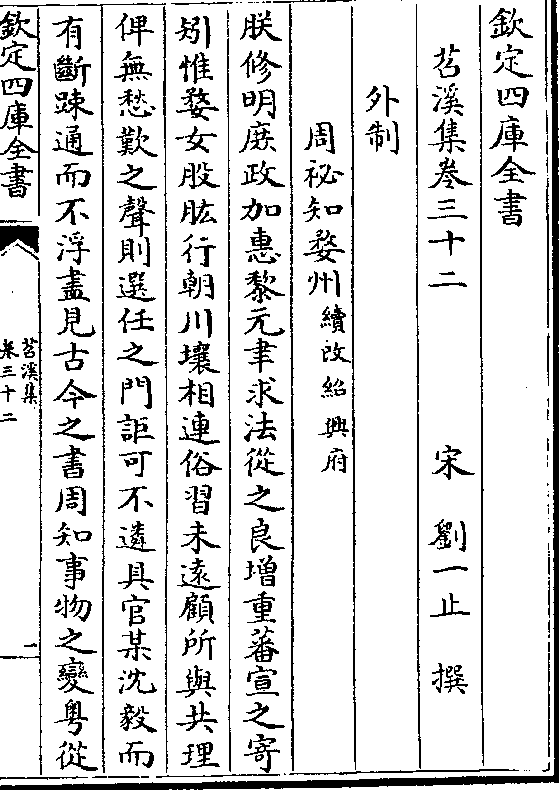 欽定四庫全書
苕溪集卷三十二　宋　劉一止　撰
外制
周祕知婺州續改紹興府
朕修明庶政加惠黎元聿求法從之良增重蕃宣之寄
矧惟婺女股肱行朝川壤相連俗習未遠顧所與共理
俾無愁歎之聲則選任之門詎可不遴具官某沈毅而
有斷踈通而不浮盡見古今之書周知事物之變粤從
欽定四庫全書
苕溪集
卷三十二
一